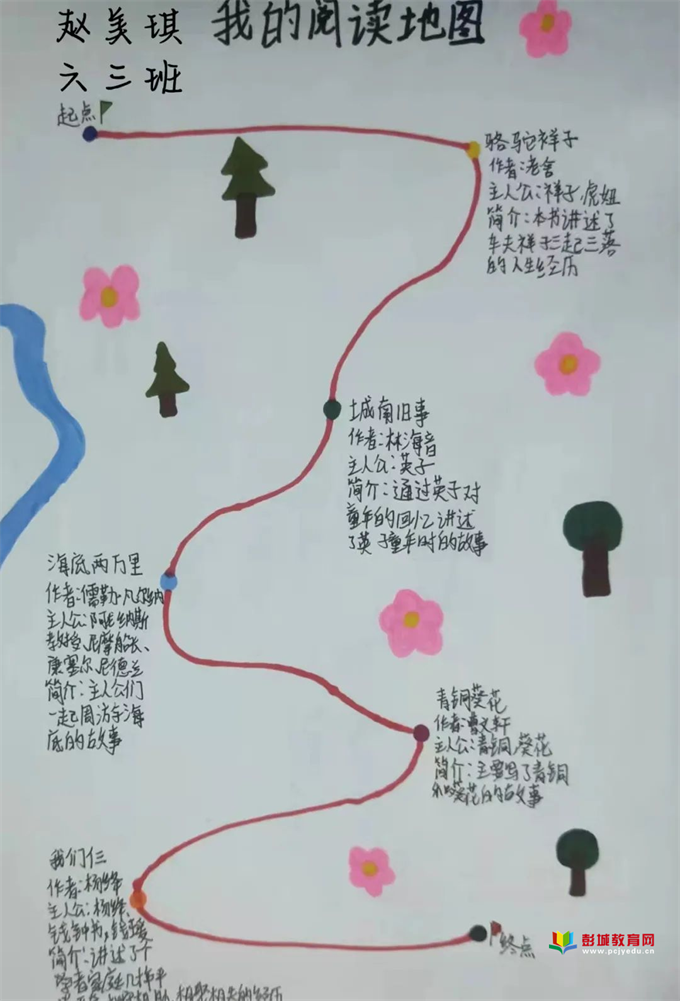 赵美琪 我的阅读地图
六三班
起点
骆驼祥子
作者:老舍
主人公:祥子,虎妞
简介:本书讲述了
车夫祥子三起三落
的人生经历
城南旧事
作者:林海音
主人公:英子
简介:通过英子对
童年的回忆讲述
了英子童年时的故事
海底两万里
作者:儒勒·凡尔纳
主人公:阿龙纳斯
教授、尼摩船长、
康塞尔、尼德兰
简介:主人公们
一起周游于海
底的故事
青铜葵花
作者:曹文轩
主人公:青铜,葵花
简介:主要写了青铜
和葵花的故事
我们仨
作者:杨绛
主人公:杨绛、
钱钟书,钱瑗
简介:讲述了个
学者家庭几十年平
相聚相失的经历
终点
彭城教育网
www.pcjyedu.cn